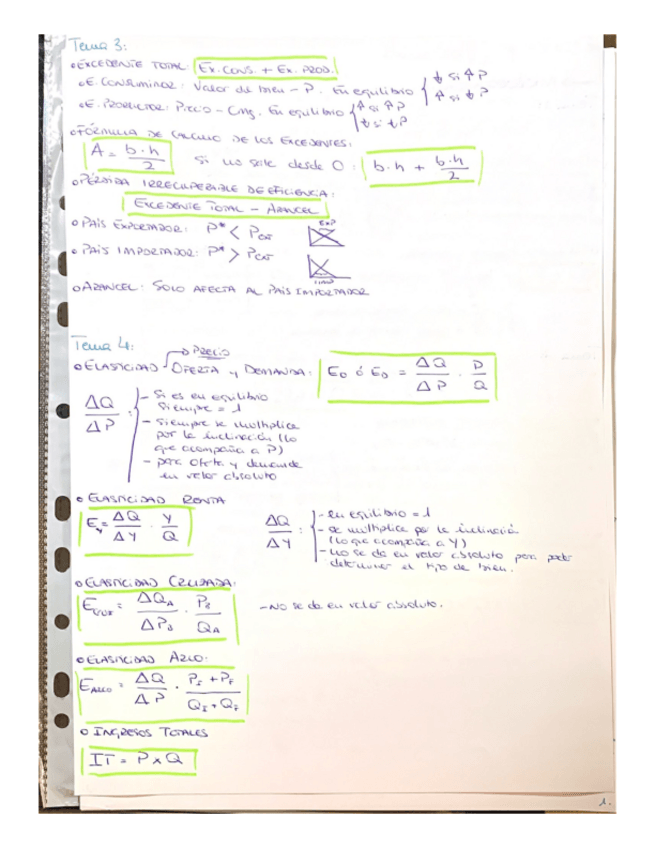 Tema 3:
• EXCEDENTE TOTAL: Ex. CONS. + Ex. PROD.
• E. CONSUMIDOR: Valor de bien - P. En equilibrio { ↓ si ↑ P
↑ si ↓ P
• E. PRODUCTOR: Precio - CMg. En equilibrio { ↑ si ↑ P
↓ si ↓ P
• FÓRMULA DE CALCULO DE LOS EXCEDENTES:
A = b · h / 2 si no sale desde 0: b · h + b · h / 2
• PÉRDIDA IRRECUPERABLE DE EFICIENCIA:
EXCEDENTE TOTAL - ARANCEL
• PAÍS EXPORTADOR: P* < P ext EXP
• PAÍS IMPORTADOR: P* > P ext
IMP
• ARANCEL: SOLO AFECTA AL PAÍS IMPORTADOR
Tema 4:
→ PRECIO
• ELASTICIDAD OFERTA y DEMANDA: E0 ó ED = ΔQ / ΔP · P / Q
ΔQ / ΔP : - Si es en equilibrio
siempre = 1
- siempre se multiplica
por la inclinación (lo
que acompaña a P)
- para oferta y demanda
en valor absoluto
• ELASTICIDAD RENTA
Ey = ΔQ / ΔY · Y / Q
ΔQ / ΔY : - en equilibrio = 1
- se multiplica por la inclinación
(lo que acompaña a Y)
- no se da en valor absoluto para poder
determinar el tipo de bien.
• ELASTICIDAD CRUZADA:
E cruz = ΔQA / ΔPB · PB / QA - No se da en valor absoluto.
• ELASTICIDAD ARCO:
E ARCO = ΔQ / ΔP · PI + PF / QI + QF
• INGRESOS TOTALES
IT = P x Q
1.